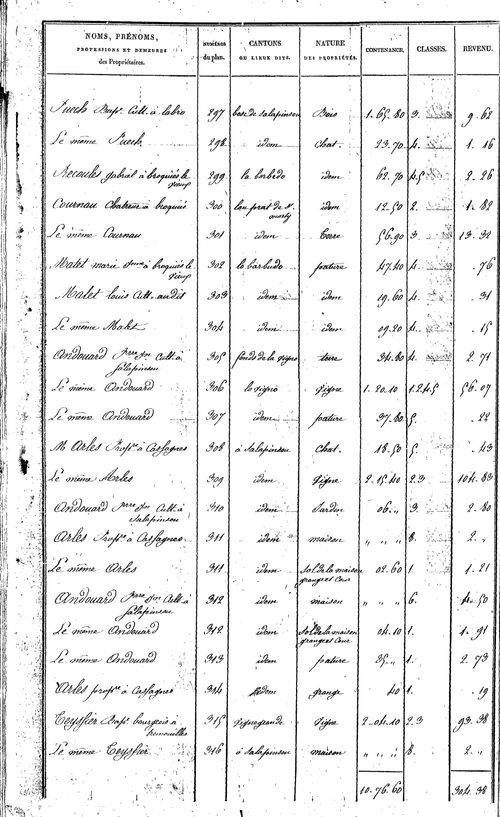 NOMS, PRÉNOMS, PROFESSIONS ET DEMEURES des Propriétaires. NUMÉROS du plan. CANTONS OU LIEUX DITS. NATURE DES PROPRIÉTÉS. CONTENANCE. CLASSES. REVENU.
Puech Bapt. Cult. à labro 297 bose de salapinson Bois 1. 65. 80 3 9. 62
Le même Puech 298 idem Chat. 23. 70 4. 1. 16
Recoules gabriel à broquiés le vieux 299 le barbedo idem 62. 70 4 5 2. 26
Cournau à broquiés 300 lou prat de idem 12. 50 2. 1. 82
Le même Cournau 301 idem terre 56. 90 3 13. 32
Malet marie à broquiés le vieux 302 le barbedo pature 47. 40 4. 76
Malet louis Cult. audit 303 idem idem 19. 60 4. 31
Le même Malet 304 idem idem 09. 20 4. 15
Andouard pierre jn Cult. à salapinson 305 fonds de la vigno terre 34. 80 4. 2. 71
Le même Andouard 306 le vigno vigne 1. 20. 10 1. 2. 4. 5 56. 07
Le même Andouard 307 idem pature 37. 80 5. 22
M. Arles Propre. à Cassagnes 308 à salapinson Chat. 18. 50 5 43
Le même Arles 309 idem Vigne 2. 15. 40 2 3 104. 83
Andouard pierre jn Cult. à salapinson 310 idem Jardin 06. „ 3 2. 80
Arles Propre. à Cassagnes 311 idem maison „ „ „ 8. 2. „
Le même Arles 311 idem Sol de la maison granges et Cour 02. 60 1. 1. 21
Andouard pierre jn Cult. à salapinson 312 idem maison „ „ „ 6. 4. 50
Le même Andouard 312 idem Sol de la maison granges et Cour 04. 10 1. 1. 91
Le même Andouard 313 idem pature 35. „ 1. 2. 73
Arles propre. à Cassagnes 314 idem grange 40 1. 19
Teyssier Propre. bourgeois à 315 vigne grande Vigne 2. 04. 10 2 3 93. 38
Le même Teyssier 316 à salapinson maison „ „ „ 8. 2. „
10. 76. 60 304. 38